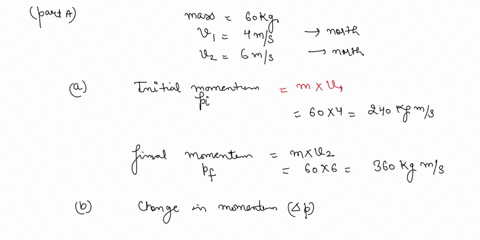 (part A) mass = 60 Kg,
v₁ = 4 m/s → north
v₂ = 6 m/s → north
(a) Initial momentum = m × v₁
pi = 60 × 4 = 240 Kg m/s
final momentum = m × v₂
pf = 60 × 6 = 360 Kg m/s
(b) Change in momentum (Δp)